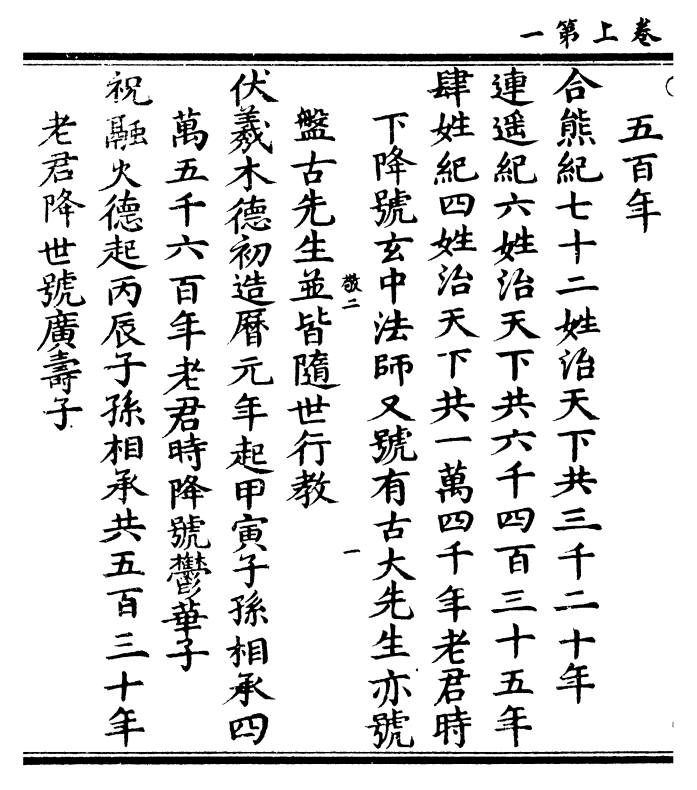 卷上第一
五百年
合熊紀七十二姓治天下共三千二十年
連遥紀六姓治天下共六千四百三十五年
肆姓紀四姓治天下共一萬四千年老君時
下降號玄中法師又號有古大先生亦號
敬二
一
盤古先生並皆隨世行教
伏羲木德初造曆元年起甲寅子孫相承四
萬五千六百年老君時降號鬱華子
祝融火德起丙辰子孫相承共五百三十年
老君降世號廣壽子